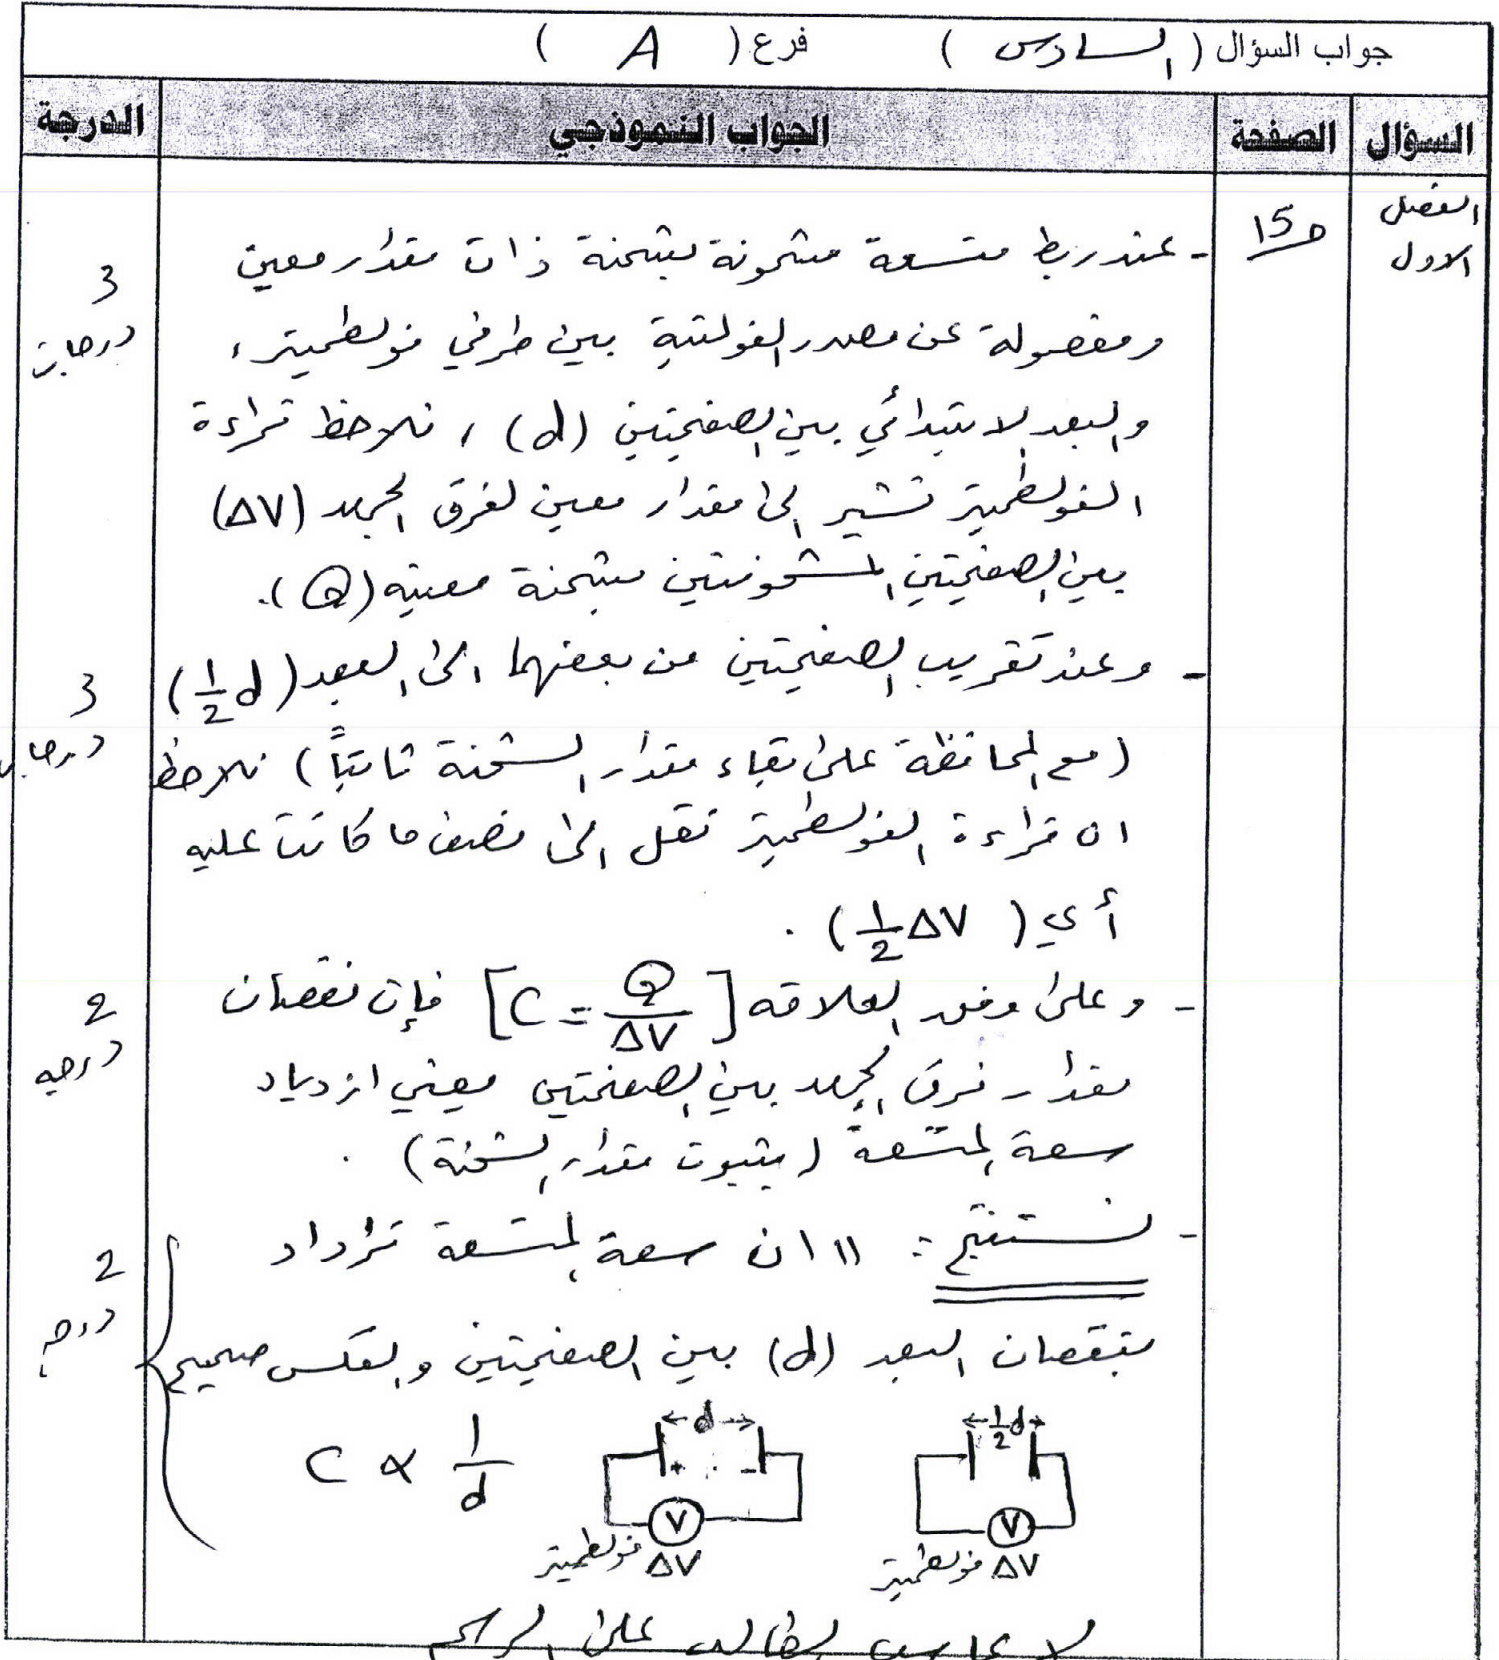 جواب السؤال ( السادس ) فرع ( A )
السؤال الصفحة الجواب النموذجي الدرجة
الفصل الاول
ص15
- عند ربط متسعة مشحونة بشحنة ذات مقدار معين
3 درجات
ومفصولة عن مصدر الفولتية بين طرفي فولطميتر ،
والبعد الابتدائي بين الصفيحتين (d) ، نلاحظ قراءة
الفولطميتر تشير الى مقدار معين لفرق الجهد (ΔV)
بين الصفيحتين المشحونتين بشحنة معينه (Q).
- وعند تقريب الصفيحتين من بعضهما الى البعد (1/2 d)
3 درجات
(مع المحافظة على بقاء مقدار الشحنة ثابتاً) نلاحظ
ان قراءة الفولطميتر تقل الى نصف ما كانت عليه
أي ( 1/2 ΔV) .
- وعلى وفق العلاقه [C = Q/ΔV] فإن نقصان
2 درجه
مقدار فرق الجهد بين الصفيحتين يعني ازدياد
سعة المتسعة (بثبوت مقدار الشحنة) .
- نستنتج : " ان سعة المتسعة تزداد
2 درجة
بنقصان البعد (d) بين الصفيحتين والعكس صحيح
C ∝ 1/d
d
+ -
V
ΔV فولطميتر
1/2 d
V
ΔV فولطميتر
لا يحاسب الطالب على الرسم